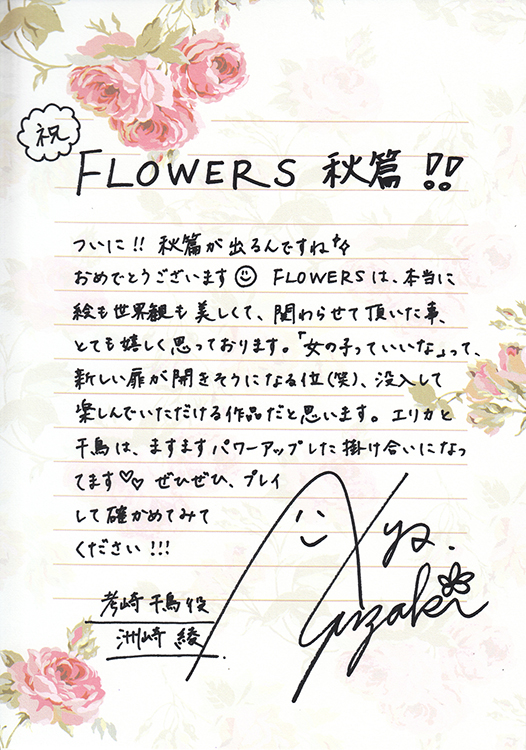 祝
FLOWERS 秋篇!!
ついに!! 秋篇が出るんですね
おめでとうございます FLOWERSは、本当に
絵も世界観も美しくて、関わらせて頂いた事、
とても嬉しく思っております。「女の子っていいな」って、
新しい扉が開きそうになる位(笑)、没入して
楽しんでいただける作品だと思います。エリカと
千鳥は、ますますパワーアップした掛け合いになっ
てます♡♡ ぜひぜひ、プレイ
して確かめてみて
ください!!!
考崎 千鳥役
洲崎 綾
Aya.
Suzaki